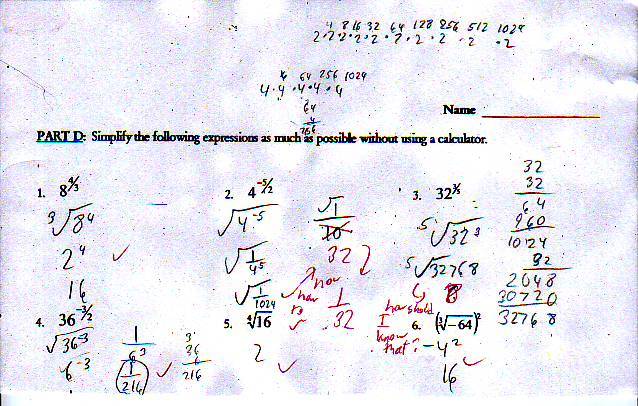 4 8 16 32 64 128 256 512 1024
2·2·2·2·2·2·2·2·2·2
64 256 1024
4·4·4·4·4
64
4
256
Name
PART D: Simplify the following expressions as much as possible without using a calculator.
32
32
64
960
1024
32
2048
30720
32768
1. 8^4/3
∛8^4
2^4 ✓
16
2. 4^-5/2
√4^-5
√1/4^5
√1/1024
√1
32
how
1/32
3. 32^3/5
5√32^3
5√32768
8
how should
I
know
that?
4. 36^-3/2
√36^-3
6^-3
1/6^3
1/216 ✓
3
36
6
216
5. ∜16
2 ✓
6. (∛-64)^2
-4^2
16 ✓